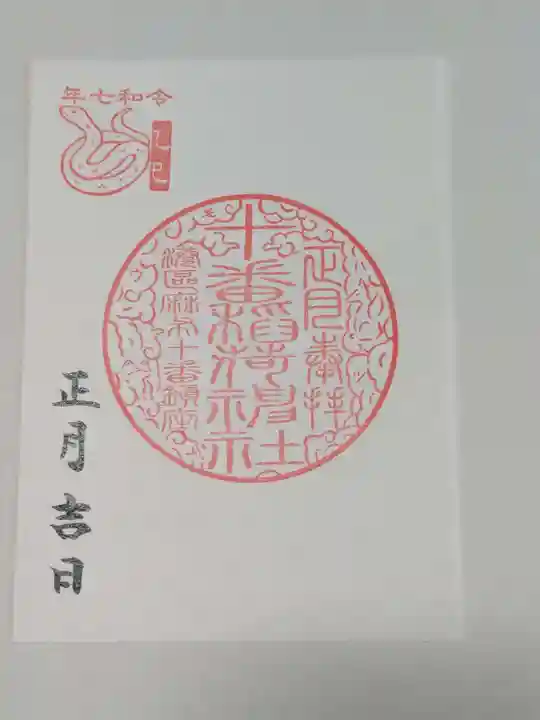 令和七年
乙巳
正月奉拝
十番稲荷神社
港区麻布十番鎮座
正月吉日